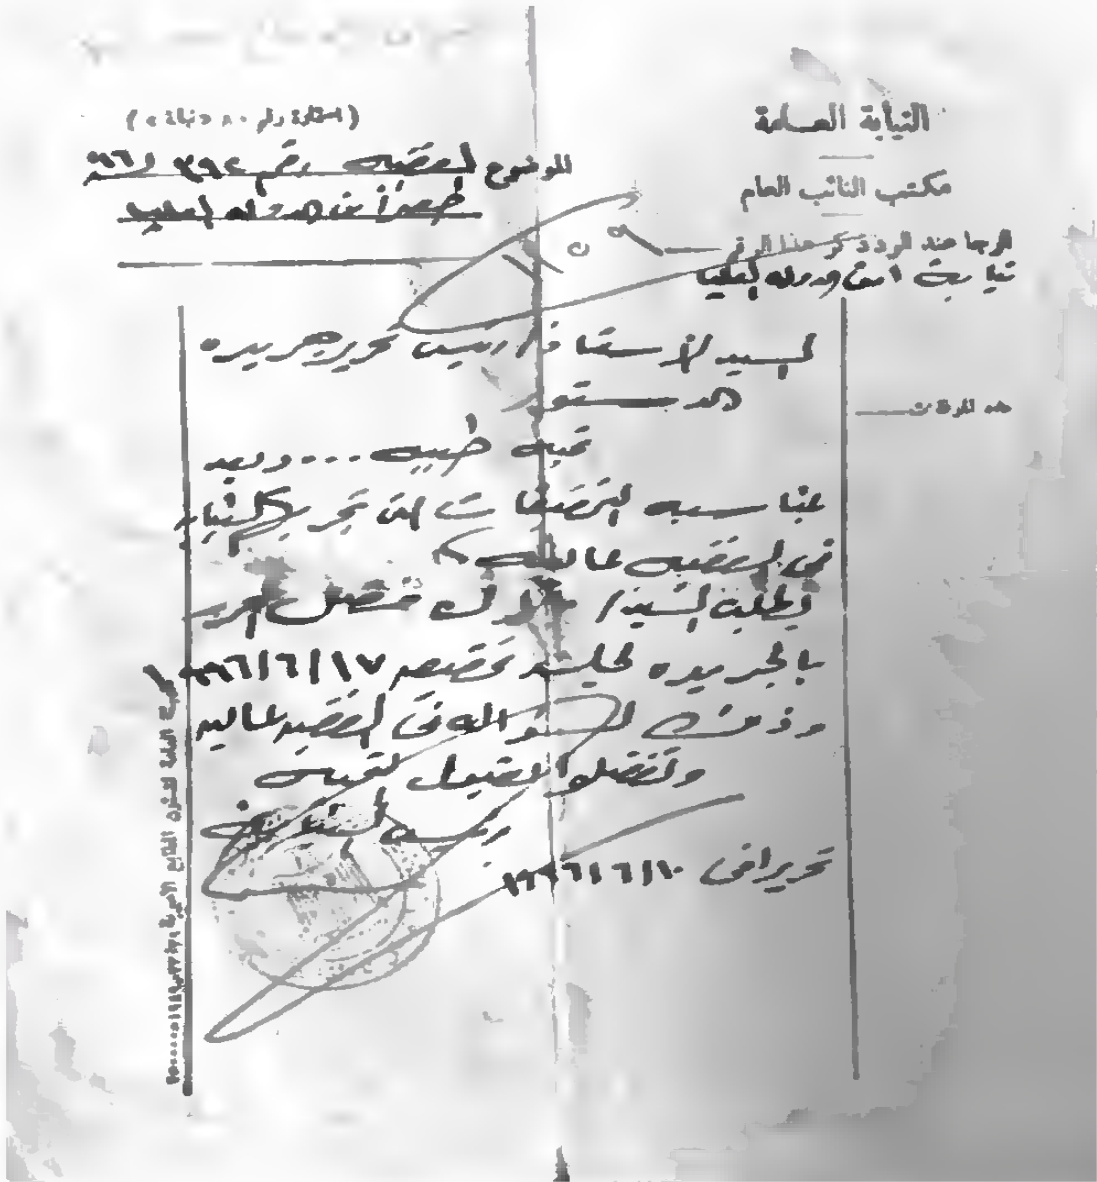 النيابة العامة
مكتب النائب العام
الرجا عند الرد ذكر هذا الرقم
نيابة أمن الدولة العليا
(استمارة رقم ٨٠ «نيابة»)
الموضوع القضية رقم ٣٩٢ / ٩٦
حصر أمن دولة عليا
عدد المرفقات
السيد الأستاذ / رئيس تحرير جريدة
الدستور
تحية طيبة ... وبعد
بمناسبة التحقيقات التى تجريها النيابة
فى القضية عاليه
نطلب السيد / المحرر
بالجريدة لجلسة تحقيق ١٧/٦/١٩٩٦
وذلك لسؤاله فى القضية عاليه
وتفضلوا بقبول التحية
رئيس النيابة
تحريرا فى ١٠/٦/١٩٩٦